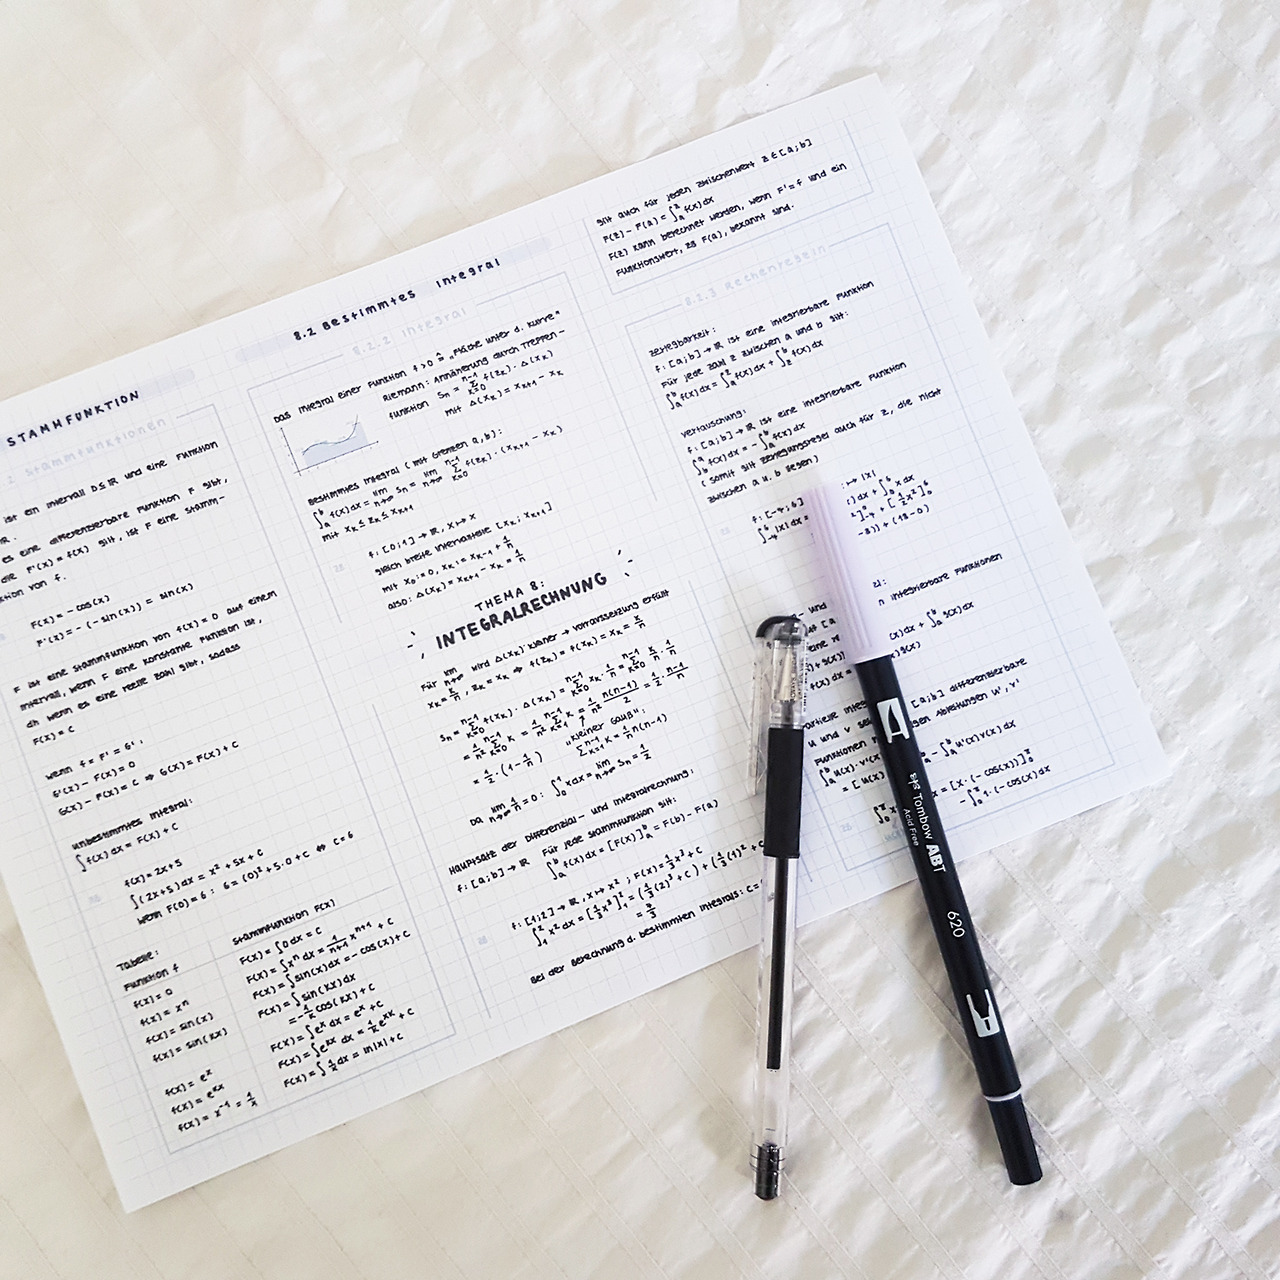 STAMMFUNKTION
Stammfunktionen
ist ein Intervall D⊆ℝ und eine Funktion
es eine differenzierbare Funktion F gibt,
die F'(x) = f(x) gilt, ist F eine Stamm-
ktion von f.
F(x) = - cos(x)
F'(x) = - (-sin(x)) = sin(x)
F ist eine Stammfunktion von f(x) = 0 auf einem
Intervall, wenn F eine konstante Funktion ist,
dh wenn es eine reelle Zahl gibt, sodass
F(x) = C
wenn F' = G':
G'(x) - F'(x) = 0
G(x) - F(x) = C ⇒ G(x) = F(x) + C
unbestimmtes Integral:
∫f(x)dx = F(x) + C
f(x) = 2x+5
∫(2x+5)dx = x² + 5x + C
wenn F(0) = 6 : 6 = (0)² + 5·0 + C ⇔ C = 6
Tabelle:
Funktion f Stammfunktion F(x)
f(x) = 0 F(x) = ∫0dx = C
f(x) = xⁿ F(x) = ∫xⁿdx = 1/(n+1) xⁿ⁺¹ + C
f(x) = sin(x) F(x) = ∫sin(x)dx = - cos(x) + C
f(x) = sin(kx) F(x) = ∫sin(kx)dx
= -1/k cos(kx) + C
f(x) = eˣ F(x) = ∫eˣdx = eˣ + C
f(x) = eᵏˣ F(x) = ∫eᵏˣdx = 1/k eᵏˣ + C
f(x) = x⁻¹ = 1/x F(x) = ∫1/x dx = ln|x| + C
8.2 Bestimmtes Integral
8.2.2 Integral
Das Integral einer Funktion f > 0 ≙ „Fläche unter d. Kurve"
Riemann: Annäherung durch Treppen-
funktion Sₙ = Σ_{k=0}^{n-1} f(zₖ) · Δ(xₖ)
mit Δ(xₖ) = xₖ₊₁ - xₖ
Bestimmtes Integral (mit Grenzen a,b):
∫ₐᵇ f(x)dx = lim_{n→∞} Sₙ = lim_{n→∞} Σ_{k=0}^{n-1} f(zₖ) · (xₖ₊₁ - xₖ)
mit xₖ ≤ zₖ ≤ xₖ₊₁
f: [0;1] → ℝ, x ↦ x
gleich breite Intervallteile [xₖ; xₖ₊₁]
mit x₀ = 0, xₖ = xₖ₋₁ + 1/n
also: Δ(xₖ) = xₖ₊₁ - xₖ = 1/n
THEMA 8:
INTEGRALRECHNUNG
Für lim_{n→∞} wird Δ(xₖ) kleiner → Voraussetzung erfüllt
xₖ = k/n, zₖ = xₖ ⇒ f(zₖ) = f(xₖ) = xₖ = k/n
Sₙ = Σ_{k=0}^{n-1} f(xₖ) · Δ(xₖ) = Σ_{k=0}^{n-1} xₖ · 1/n = Σ_{k=0}^{n-1} k/n · 1/n
= 1/n² Σ_{k=0}^{n-1} k = 1/n² Σ_{k=1}^{n-1} k = 1/n² · n(n-1)/2 = 1/2 · (n-1)/n
= 1/2 · (1 - 1/n) „kleiner Gauß":
Σ_{k=1}^{n-1} k = 1/2 n(n-1)
Da lim_{n→∞} 1/n = 0: ∫₀¹ xdx = lim_{n→∞} Sₙ = 1/2
Hauptsatz der Differenzial- und Integralrechnung:
f: [a;b] → ℝ Für jede Stammfunktion gilt:
∫ₐᵇ f(x)dx = [F(x)]ₐᵇ = F(b) - F(a)
f: [1;2] → ℝ, x ↦ x² ; F(x) = 1/3 x³ + C
∫₁² x²dx = [1/3 x³]₁² = (1/3 (2)³ + C) + (1/3 (1)³ + C
= 7/3
Bei der Berechnung d. bestimmten Integrals: C =
gilt auch für jeden Zwischenwert z ∈ [a;b]
F(z) - F(a) = ∫ₐᶻ f(x)dx
F(z) kann berechnet werden, wenn F' = f und ein
Funktionswert, zB F(a), bekannt sind.
8.2.3 Rechenregeln
Zerlegbarkeit:
f: [a;b] → ℝ ist eine integrierbare Funktion
Für jede Zahl z zwischen a und b gilt:
∫ₐᵇ f(x)dx = ∫ₐᶻ f(x)dx + ∫_zᵇ f(x)dx
Vertauschung:
f: [a;b] → ℝ ist eine integrierbare Funktion
∫ₐᵇ f(x)dx = - ∫_bᵃ f(x)dx
(somit gilt Zerlegungsregel auch für z, die nicht
zwischen a u. b liegen)
f: [-4;6] ↦ |x|
∫₋₄⁶ |x|dx = )dx + ∫₀⁶ xdx
²]₋₄ + [1/2 x²]₀⁶
-8)) + (18-0)
- und
n integrierbare Funktionen
(x)dx + ∫ₐᵇ g(x)dx
[a;b] differenzierbare
u und v
Funktionen gen Ableitungen u', v'
∫ₐᵇ u(x)·v'(x - ∫ₐᵇ u'(x)v(x)dx
= [u(x)
= [x·(-cos(x))]
- ∫ 1·(-cos(x)dx
Tombow ABT
Acid Free
620